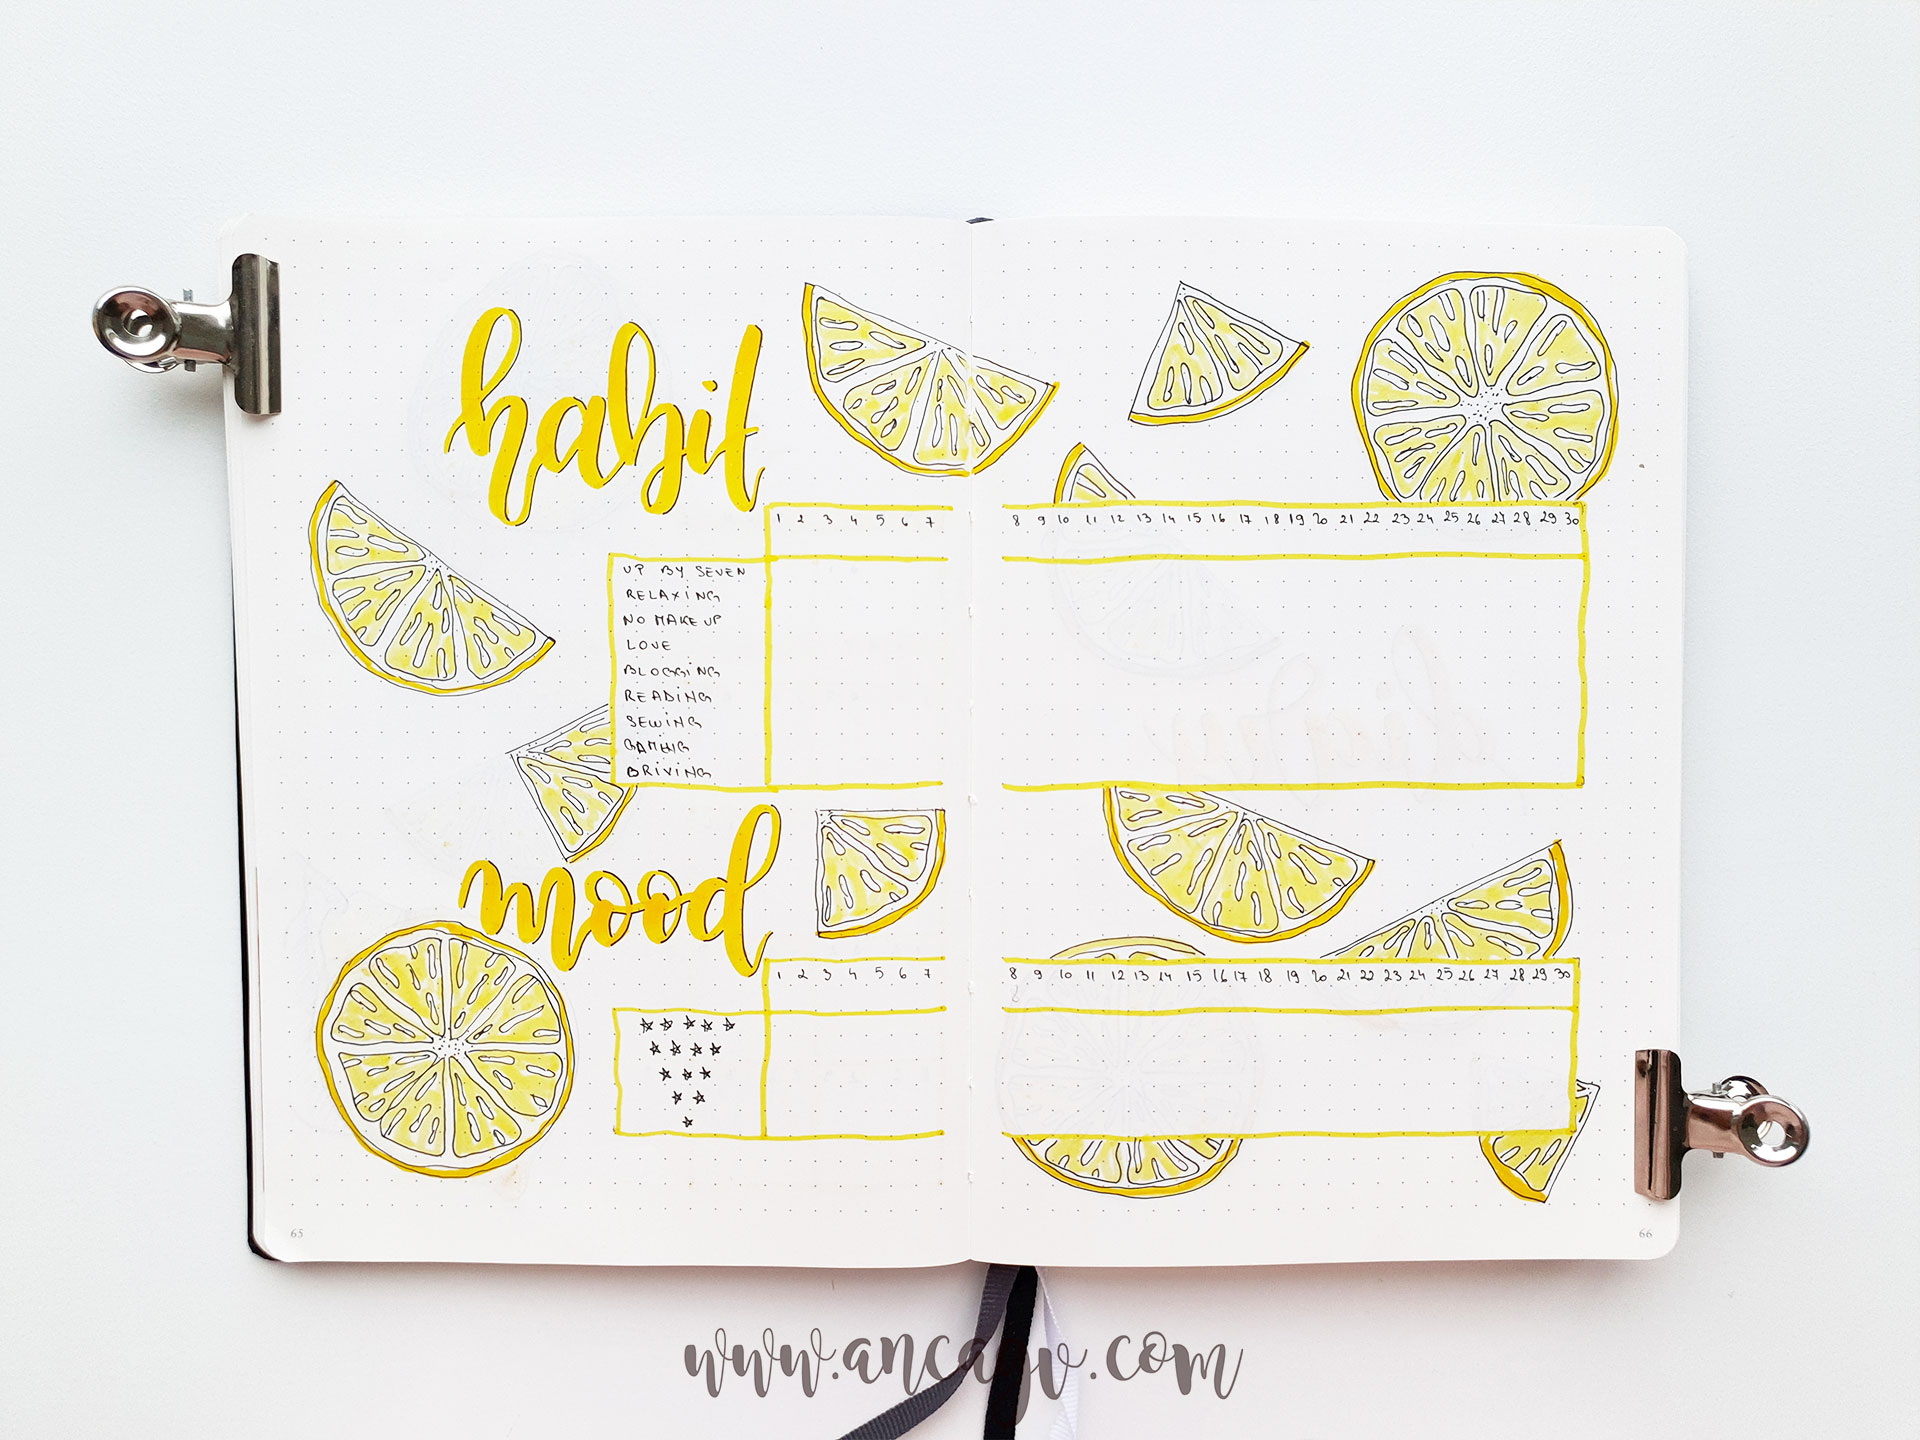 habit
1 2 3 4 5 6 7 8 9 10 11 12 13 14 15 16 17 18 19 20 21 22 23 24 25 26 27 28 29 30
UP BY SEVEN
RELAXING
NO MAKE UP
LOVE
BLOGGING
READING
SEWING
GAMING
DRIVING
mood
1 2 3 4 5 6 7 8 9 10 11 12 13 14 15 16 17 18 19 20 21 22 23 24 25 26 27 28 29 30
65
66
www.ancagv.com